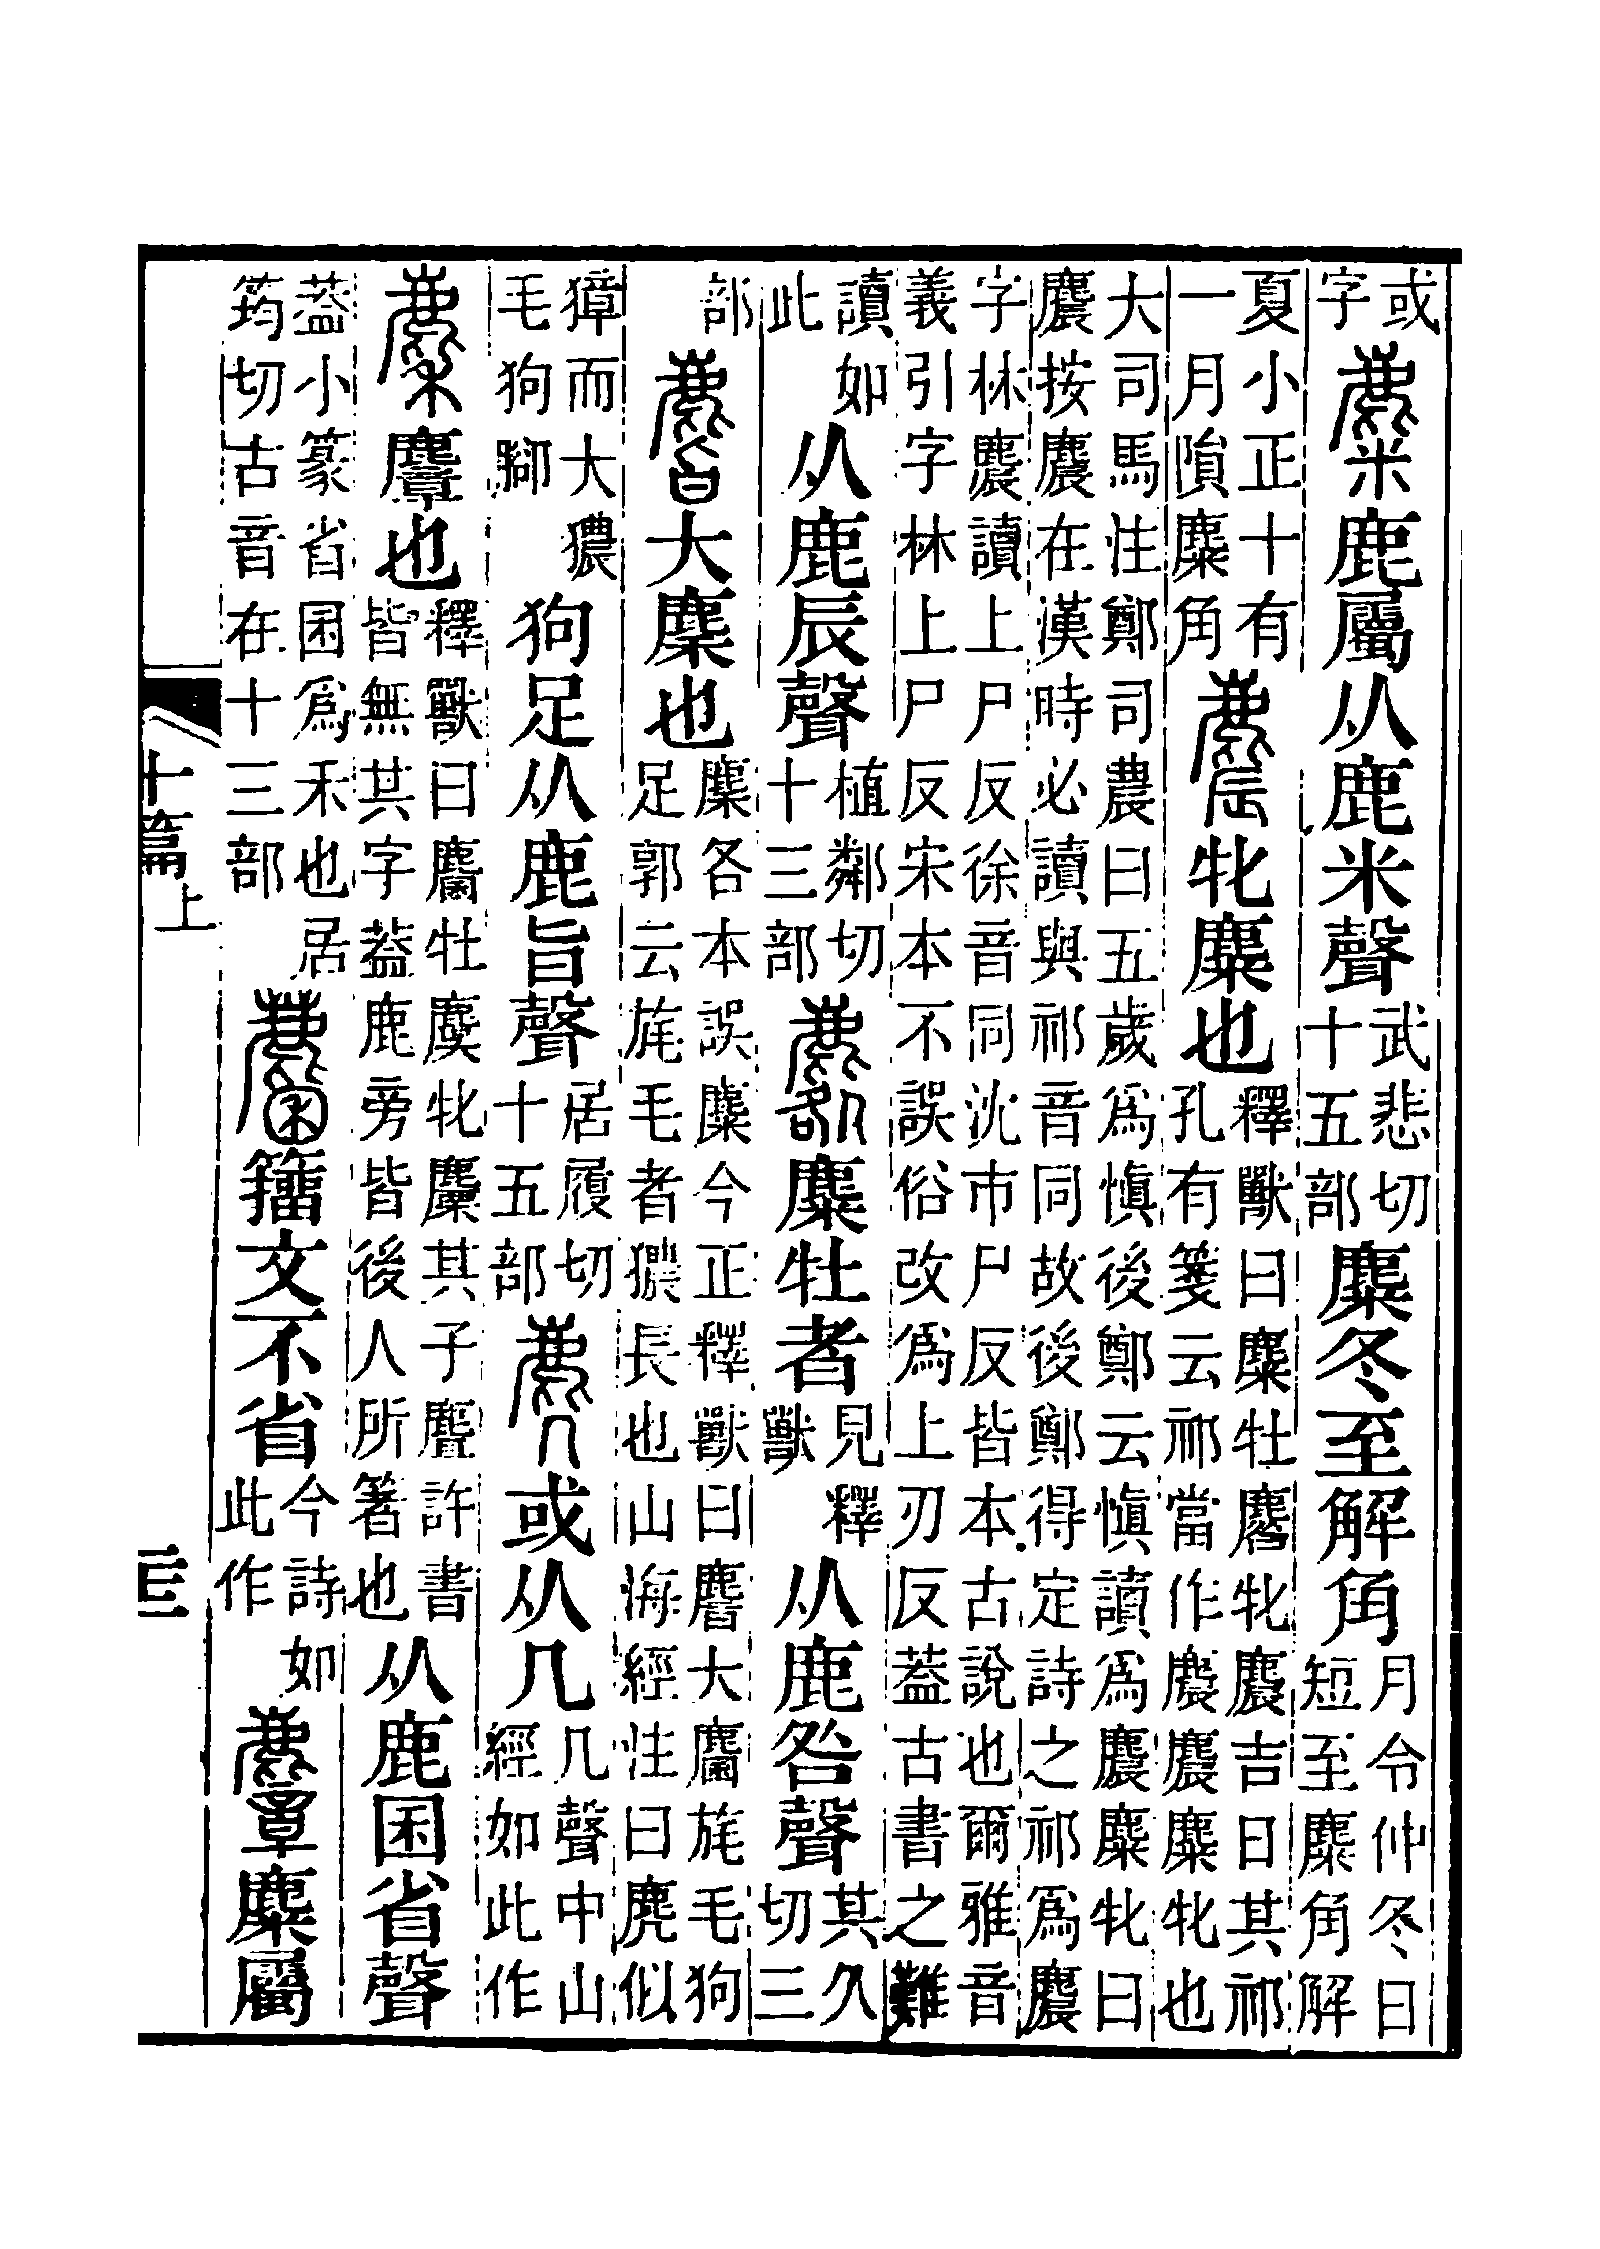 或字麋鹿屬从鹿米聲武悲切十五部麋冬至解角月令仲冬日短至麋角解
夏小正十有一月隕麋角麎牝麋也釋獸曰麋牡麔牝麎吉日其祁孔有箋云祁當作麎麎麋牝也
大司馬注鄭司農曰五歲爲愼後鄭云愼讀爲麎麋牝曰麎按麎在漢時必讀與祁音同故後鄭得定詩之祁爲麎
字林麎讀上尸反徐音同沈市尸反皆本古說也爾雅音義引字林上尸反宋本不誤俗改爲上刃反蓋古書之難
讀如此从鹿辰聲植鄰切十三部麔麋牡者見釋獸从鹿咎聲其久切三
部𪊨大麇也麇各本誤麋今正釋獸曰𪊨大麕旄毛狗足郭云旄毛者㺜長也山海經注曰麂似
獐而大㺜毛狗腳狗足从鹿旨聲居履切十五部麂或从几几聲中山經如此作
麇麞也釋獸曰麕牡麌牝麜其子麆許書皆無其字蓋鹿旁皆後人所箸也从鹿囷省聲
蓋小篆省囷爲禾也居筠切古音在十三部麕籒文不省今詩如此作麞麋屬
十篇上